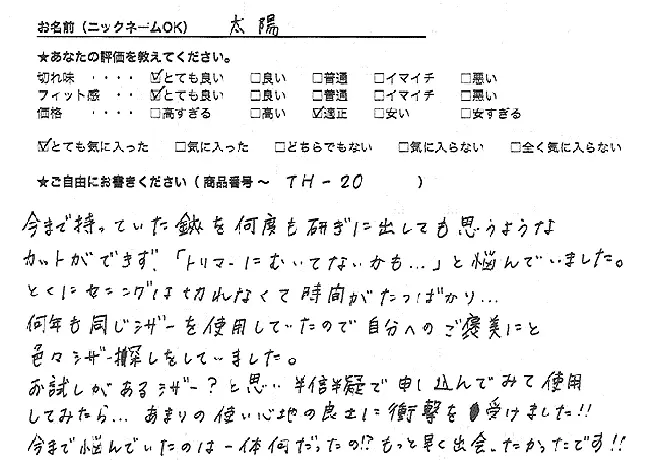 お名前（ニックネームOK） 太陽
★あなたの評価を教えてください。
切れ味 ････ ☑とても良い □良い □普通 □イマイチ □悪い
フィット感 ･･ ☑とても良い □良い □普通 □イマイチ □悪い
価格 ････ □高すぎる □高い ☑適正 □安い □安すぎる
☑とても気に入った □気に入った □どちらでもない □気に入らない □全く気に入らない
★ご自由にお書きください（商品番号～ TH-20 ）
今まで持っていた鋏を何度も研ぎに出しても思うような
カットができず、「トリマーにむいてないかも…」と悩んでいました。
とくにセニングは切れなくて時間がたつばかり…
何年も同じシザーを使用していたので自分へのご褒美にと
色々シザー探しをしていました。
お試しがあるシザー？と思い半信半疑で申し込んでみて使用
してみたら… あまりの使い心地の良さに衝撃を受けました!!
今まで悩んでいたのは一体何だったの!? もっと早く出会いたかったです!!